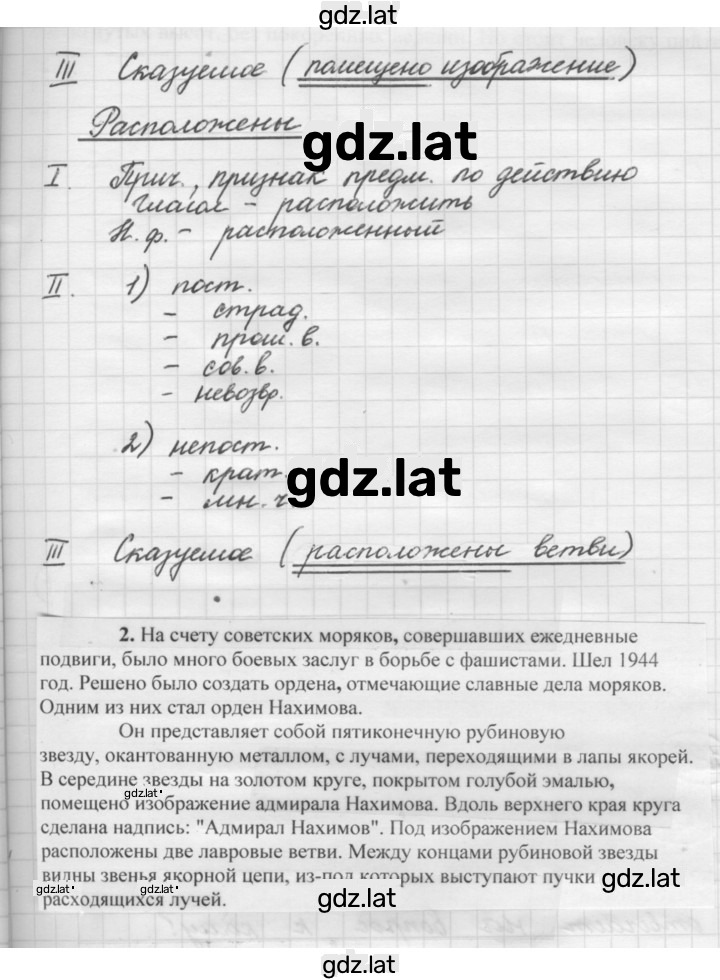 gdz.lat
III Сказуемое (помещено изображение)
Расположены
gdz.lat
I. Прич., признак предм. по действию
глагол – расположить
Н.ф. – расположенный
II. 1) пост.
– страд.
– прош. в.
– сов. в.
– невозвр.
2) непост.
– крат.
gdz.lat
– мн. ч
III Сказуемое (расположены ветви)
2. На счету советских моряков, совершавших ежедневные
подвиги, было много боевых заслуг в борьбе с фашистами. Шел 1944
год. Решено было создать ордена, отмечающие славные дела моряков.
Одним из них стал орден Нахимова.
Он представляет собой пятиконечную рубиновую
звезду, окантованную металлом, с лучами, переходящими в лапы якорей.
В середине звезды на золотом круге, покрытом голубой эмалью,
gdz.lat
помещено изображение адмирала Нахимова. Вдоль верхнего края круга
сделана надпись: "Адмирал Нахимов". Под изображением Нахимова
расположены две лавровые ветви. Между концами рубиновой звезды
видны звенья якорной цепи, из-под которых выступают пучки
gdz.lat gdz.lat gdz.lat
расходящихся лучей.
gdz.lat